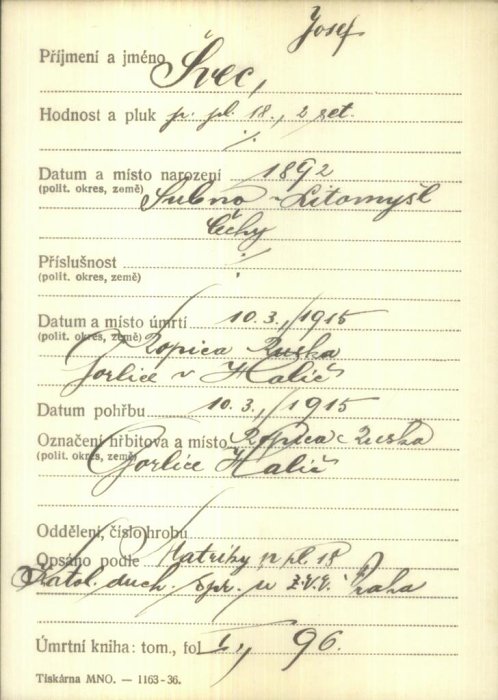 Josef
Příjmení a jméno Švec,
Hodnost a pluk p. pl. 18., 2 set.
⁒
Datum a místo narození 1892
(polit. okres, země) Lubno - Litomyšl
Čechy
Příslušnost ⁒
(polit. okres, země)
Datum a místo úmrtí 10.3./1915
(polit. okres, země) Ropica Ruska
Gorlice v Halič
Datum pohřbu 10.3./1915
Označení hřbitova a místo Ropica Ruska
(polit. okres, země) Gorlice Halič
Oddělení, číslo hrobu
Opsáno podle Matriky p. pl. 18
Katol. duch. spr. u Z.V.V. Praha
Úmrtní kniha: tom., fol. I., 96.
Tiskárna MNO. — 1163-36.